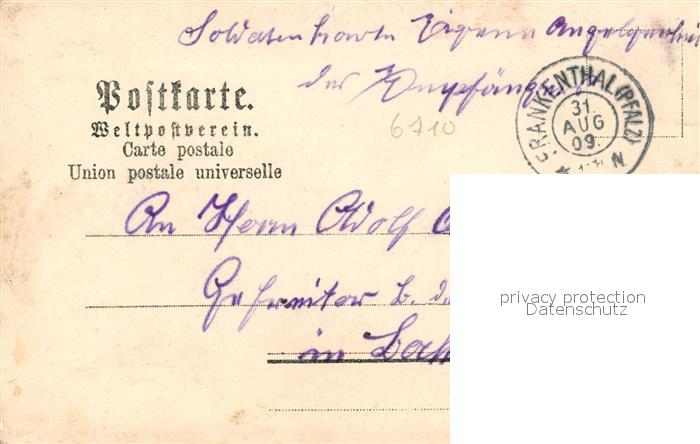 Soldatenkarte Eigene Angelgenhei
des Empfängers
Postkarte.
Weltpostverein.
Carte postale
Union postale universelle
6710
FRANKENTHAL (PFALZ)
31.
AUG
09.
N
An Herrn Adolf
Gefreiter b. de
in
privacy protection
Datenschutz